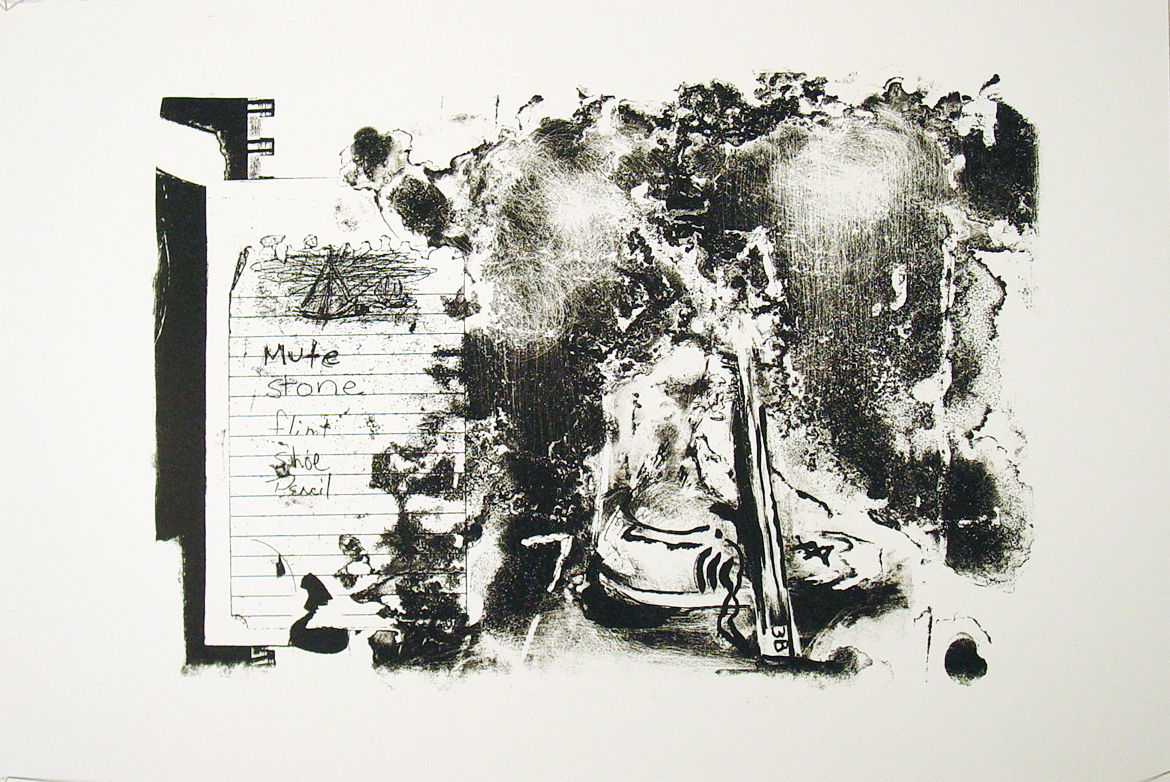 Mute
stone
flint
Shoe
Pencil
3B